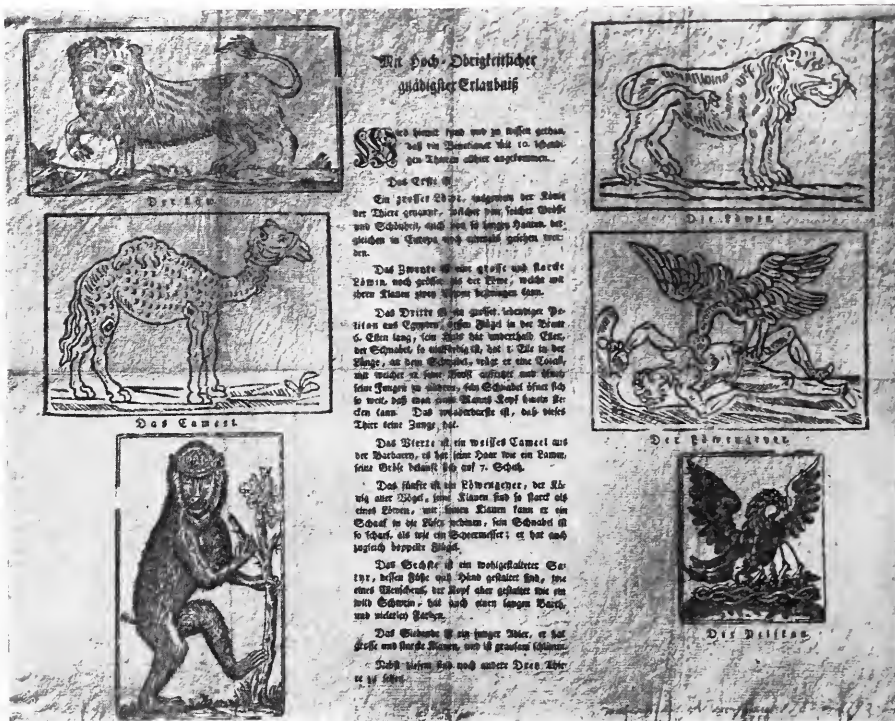 Mit Hoch-Obrigkeitlicher
gnädigster Erlaubniß
Wird hiemit kund und zu wissen gethan,
daß die Venetianer mit 10. lebendi-
gen Thieren allhier angekommen.
Das Erste ist
Ein grosser Löwe, der König
der Thiere genannt, welcher von solcher Größe
und Schönheit, auch von so langen Haaren, der-
gleichen in Europa noch niemals gesehen wor-
den.
Das Zweyte ist eine grosse und starcke
Löwin, noch grösser als der Löwe, welche mit
ihren Klauen zwey bezwingen kann.
Das Dritte ist ein grosser lebendiger Pe-
likan aus Egypten, dessen Flügel in der Breite
6. Ellen lang, sein Hals hat anderthalb Ellen,
der Schnabel, so ist, hat 1. Elle in der
Länge, an dem Schnabel, trägt er eine
mit welcher er seine Brust aufritzet und
seine Jungen zu nähren, sein Schnabel öfnet sich
so weit, daß man eines Manns Kopf hinein ste-
cken kann. Das wunderbarste ist, daß dieses
Thier keine Zunge hat.
Das Vierte ist ein weisses Cameel aus
der Barbarey, es hat seine Haar wie ein Lamm,
seine Größe belauft sich auf 7. Schuh.
Das fünfte ist ein Löwengeyer, der Kö-
nig aller Vögel, seine Klauen sind so starck als
eines Löwen, mit seinen Klauen kann er ein
Schaaf in die Lüfte nehmen, sein Schnabel ist
so scharf, als wie ein Scheermesser; er hat auch
zugleich doppelte Flügel.
Das Sechste ist ein wohlgestalteter Sa-
tyr, dessen Füße und Händ gestaltet sind, wie
eines Menschens, der Kopf aber gestaltet wie ein
wild Schwein, hat auch einen langen Barth,
und vielerley Farben.
Das Siebende ist ein junger Adler, er hat
grosse und starcke Klauen, und ist grausam schlimm.
Nebst diesem sind noch andere Drey Thie-
re zu sehen.
Der Löw
Das Cameel
Die Löwin
Der Löwengeyer
Der Pelikan